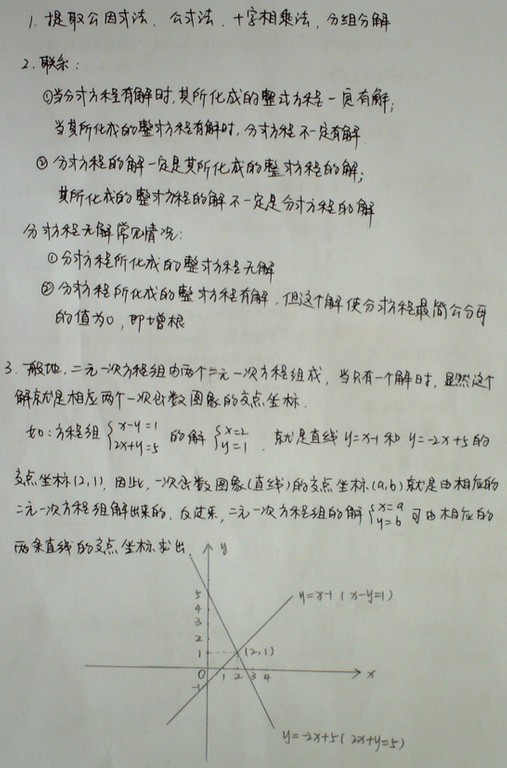 1. 提取公因式法、公式法、十字相乘法、分组分解
2. 联系:
①当分式方程有解时,其所化成的整式方程一定有解;
当其所化成的整式方程有解时,分式方程不一定有解.
② 分式方程的解一定是其所化成的整式方程的解;
其所化成的整式方程的解不一定是分式方程的解
分式方程无解常见情况:
①分式方程所化成的整式方程无解
② 分式方程所化成的整式方程有解,但这个解使分式方程最简公分母
的值为0,即增根
3. 一般地,二元一次方程组由两个二元一次方程组成,当只有一个解时,显然这个
解就是相应两个一次函数图象的交点坐标.
如:方程组 {x-y=1 2x+y=5 的解 {x=2 y=1 ,就是直线 y=x-1 和 y=-2x+5 的
交点坐标(2,1),因此,一次函数图象(直线)的交点坐标(a,b)就是由相应的
二元一次方程组解出来的,反过来,二元一次方程组的解 {x=a y=b 可由相应的
两条直线的交点坐标求出.
y
5
4
3
2
1
(2,1)
y=x-1 (x-y=1)
0 1 2 3 4
x
-1
y=-2x+5 (2x+y=5)